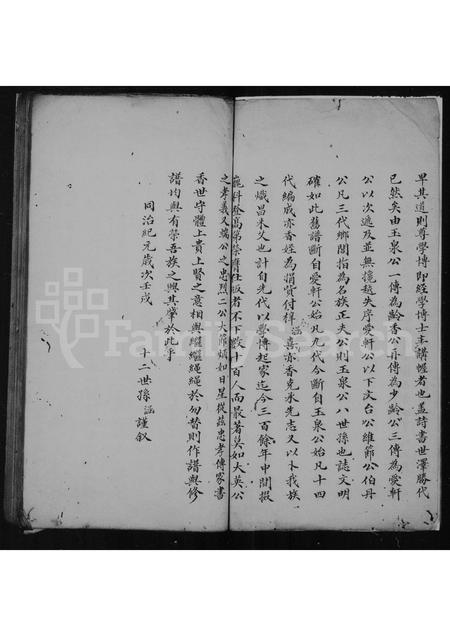 早其道則尊學博即經學博士主講幄者也蓋詩書世澤勝代
已然矣由玉泉公一傳為齡香公亦傳為少齡公三傳為愛軒
公以次遞及並無攙越失序愛軒公以下文台公維節公伯丹
公凡三代鄉閭指為名族正夫公則玉泉公八世孫也誌文明
確如此舊譜斷自愛軒公始凡九代今斷自玉泉公始凡十四
代編成亦香姓為捐貲付梓 涵喜亦香克承先志又以卜我族
之熾昌未乂也計自先代以學博起家迄今三百餘年中間掇
巍科登高第榮膺仕版者不下數十百人而最著莫如大英公
之孝義又端公之忠烈二公大節炳如日星從茲忠孝傳家書
香世守體上貴上賢之意相與繼繼繩繩於勿替則作譜與修
譜均與有榮吾族之興其肇於此乎
同治紀元歲次壬戌
十二世孫 涵謹叙
FamilySearch